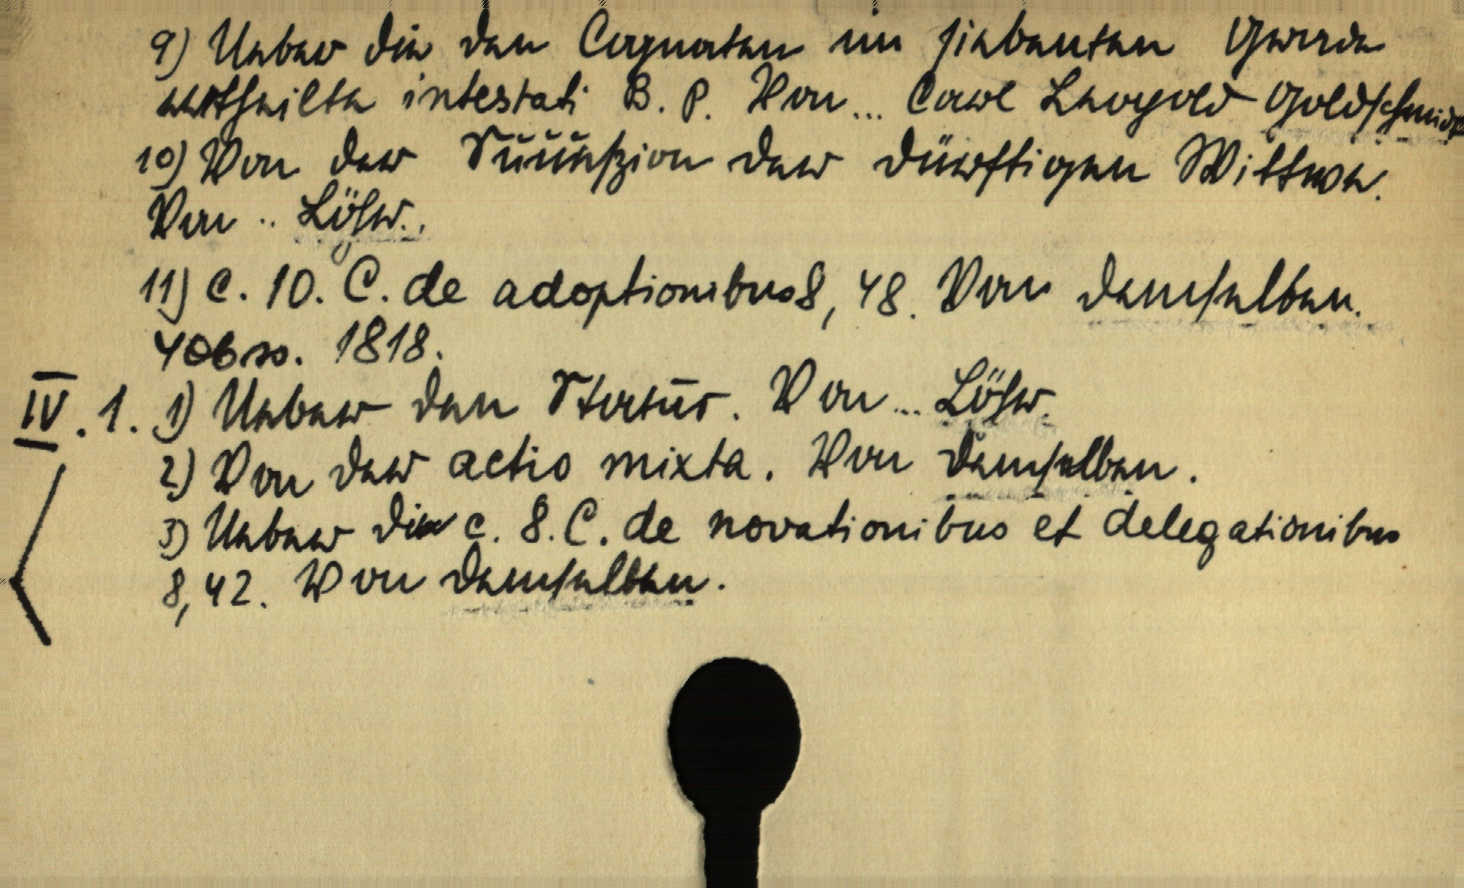 9) Ueber die den Cognaten im siebenten Grade
ertheilte intestati B. P. Von ... Carl Leopold Goldschmidt
10) Von der Succession der dürftigen Wittwe.
Von .. Löhr.
11) c. 10. C. de adoptionibus 8, 48. Von demselben.
1818.
IV. 1. 1) Ueber den Status. Von ... Löhr.
2) Von der actio mixta. Von demselben.
3) Ueber die c. 8. C. de novationibus et delegationibus
8, 42. Von demselben.